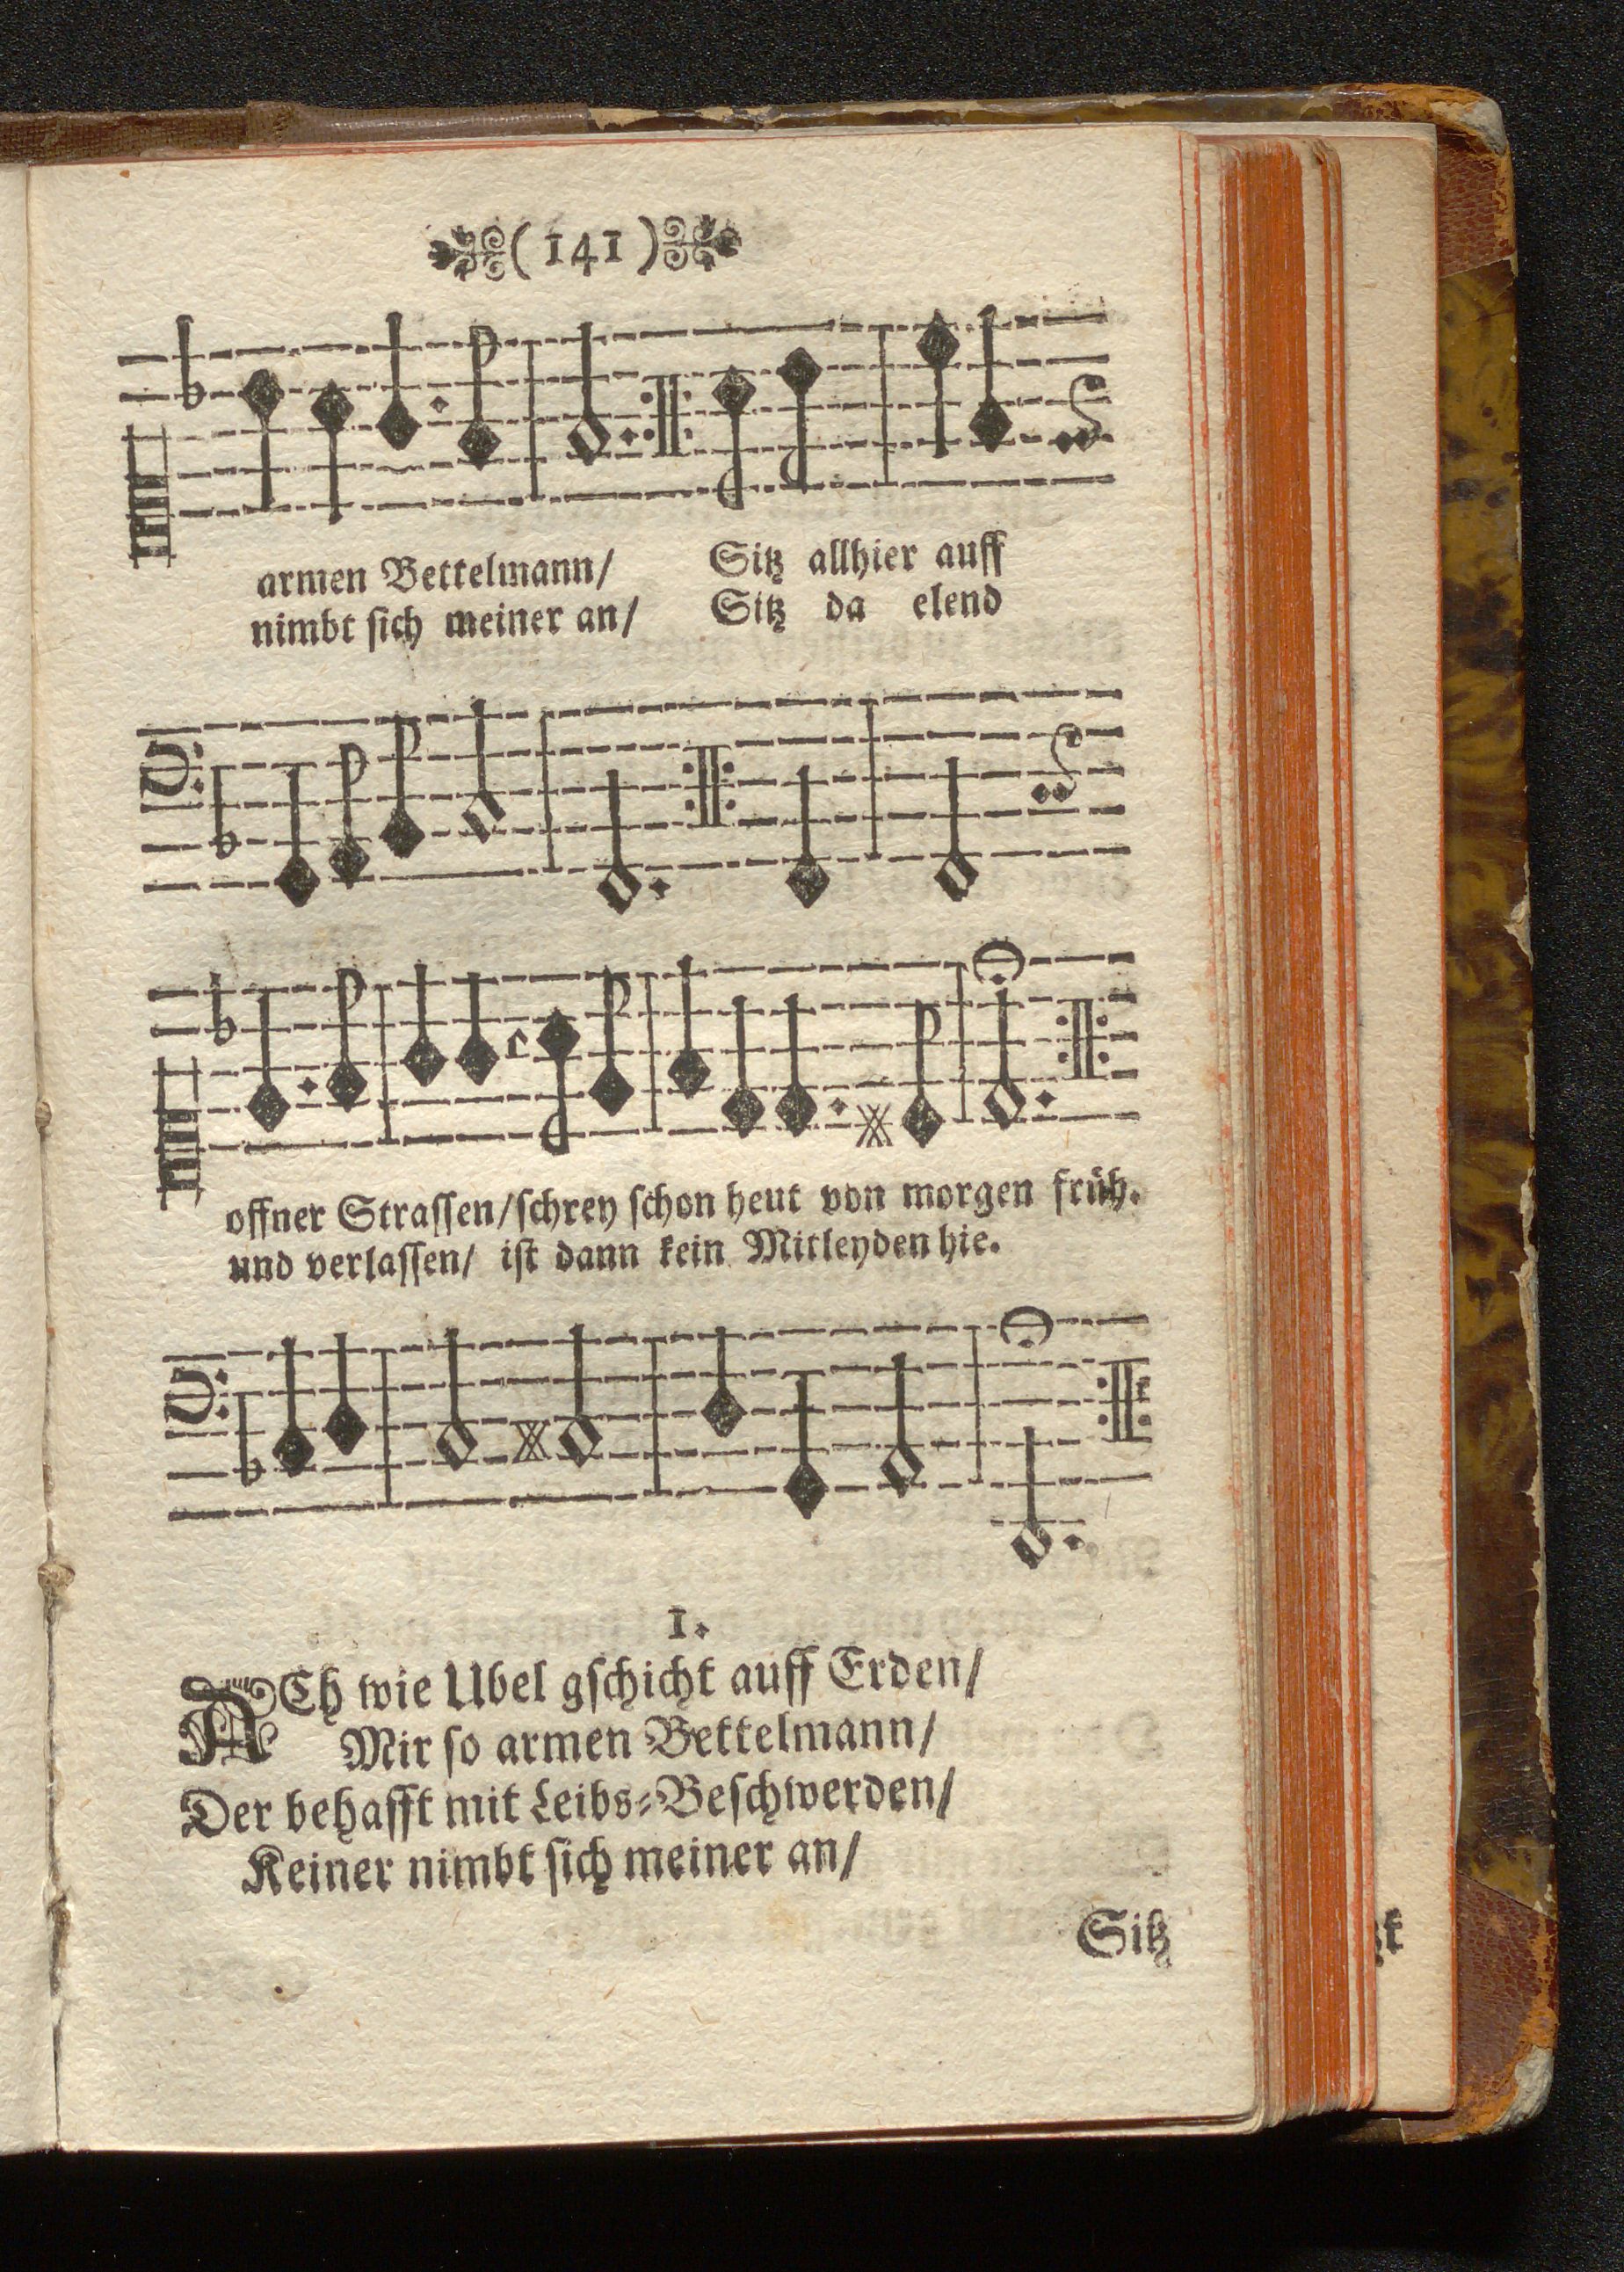 (141)
armen Bettelmann/ Sitz allhier auff
nimbt sich meiner an/ Sitz da elend
offner Strassen/schrey schon heut von morgen früh.
und verlassen/ ist dann kein Mitleyden hie.
1.
ACh wie Ubel gschicht auff Erden/
Mir so armen Bettelmann/
Der behafft mit Leibs-Beschwerden/
Keiner nimbt sich meiner an/
Sitz